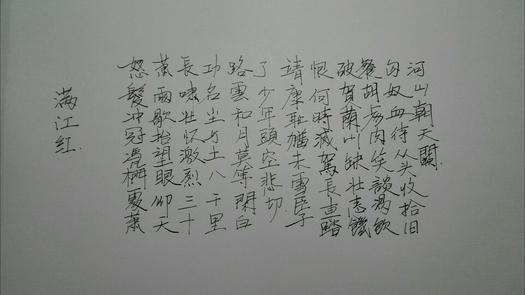 满江红
怒髮冲冠憑欄處蕭
蕭雨歇抬望眼仰天
長嘯壮怀激烈三十
功名尘与土八千里
路雲和月莫等閑白
了少年頭空悲切
靖康耻猶未雪臣子
恨何時滅駕長車踏
破賀蘭山缺壮志饑
餐胡虏肉笑談渴飲
匈奴血待从头收拾旧
河山朝天闕